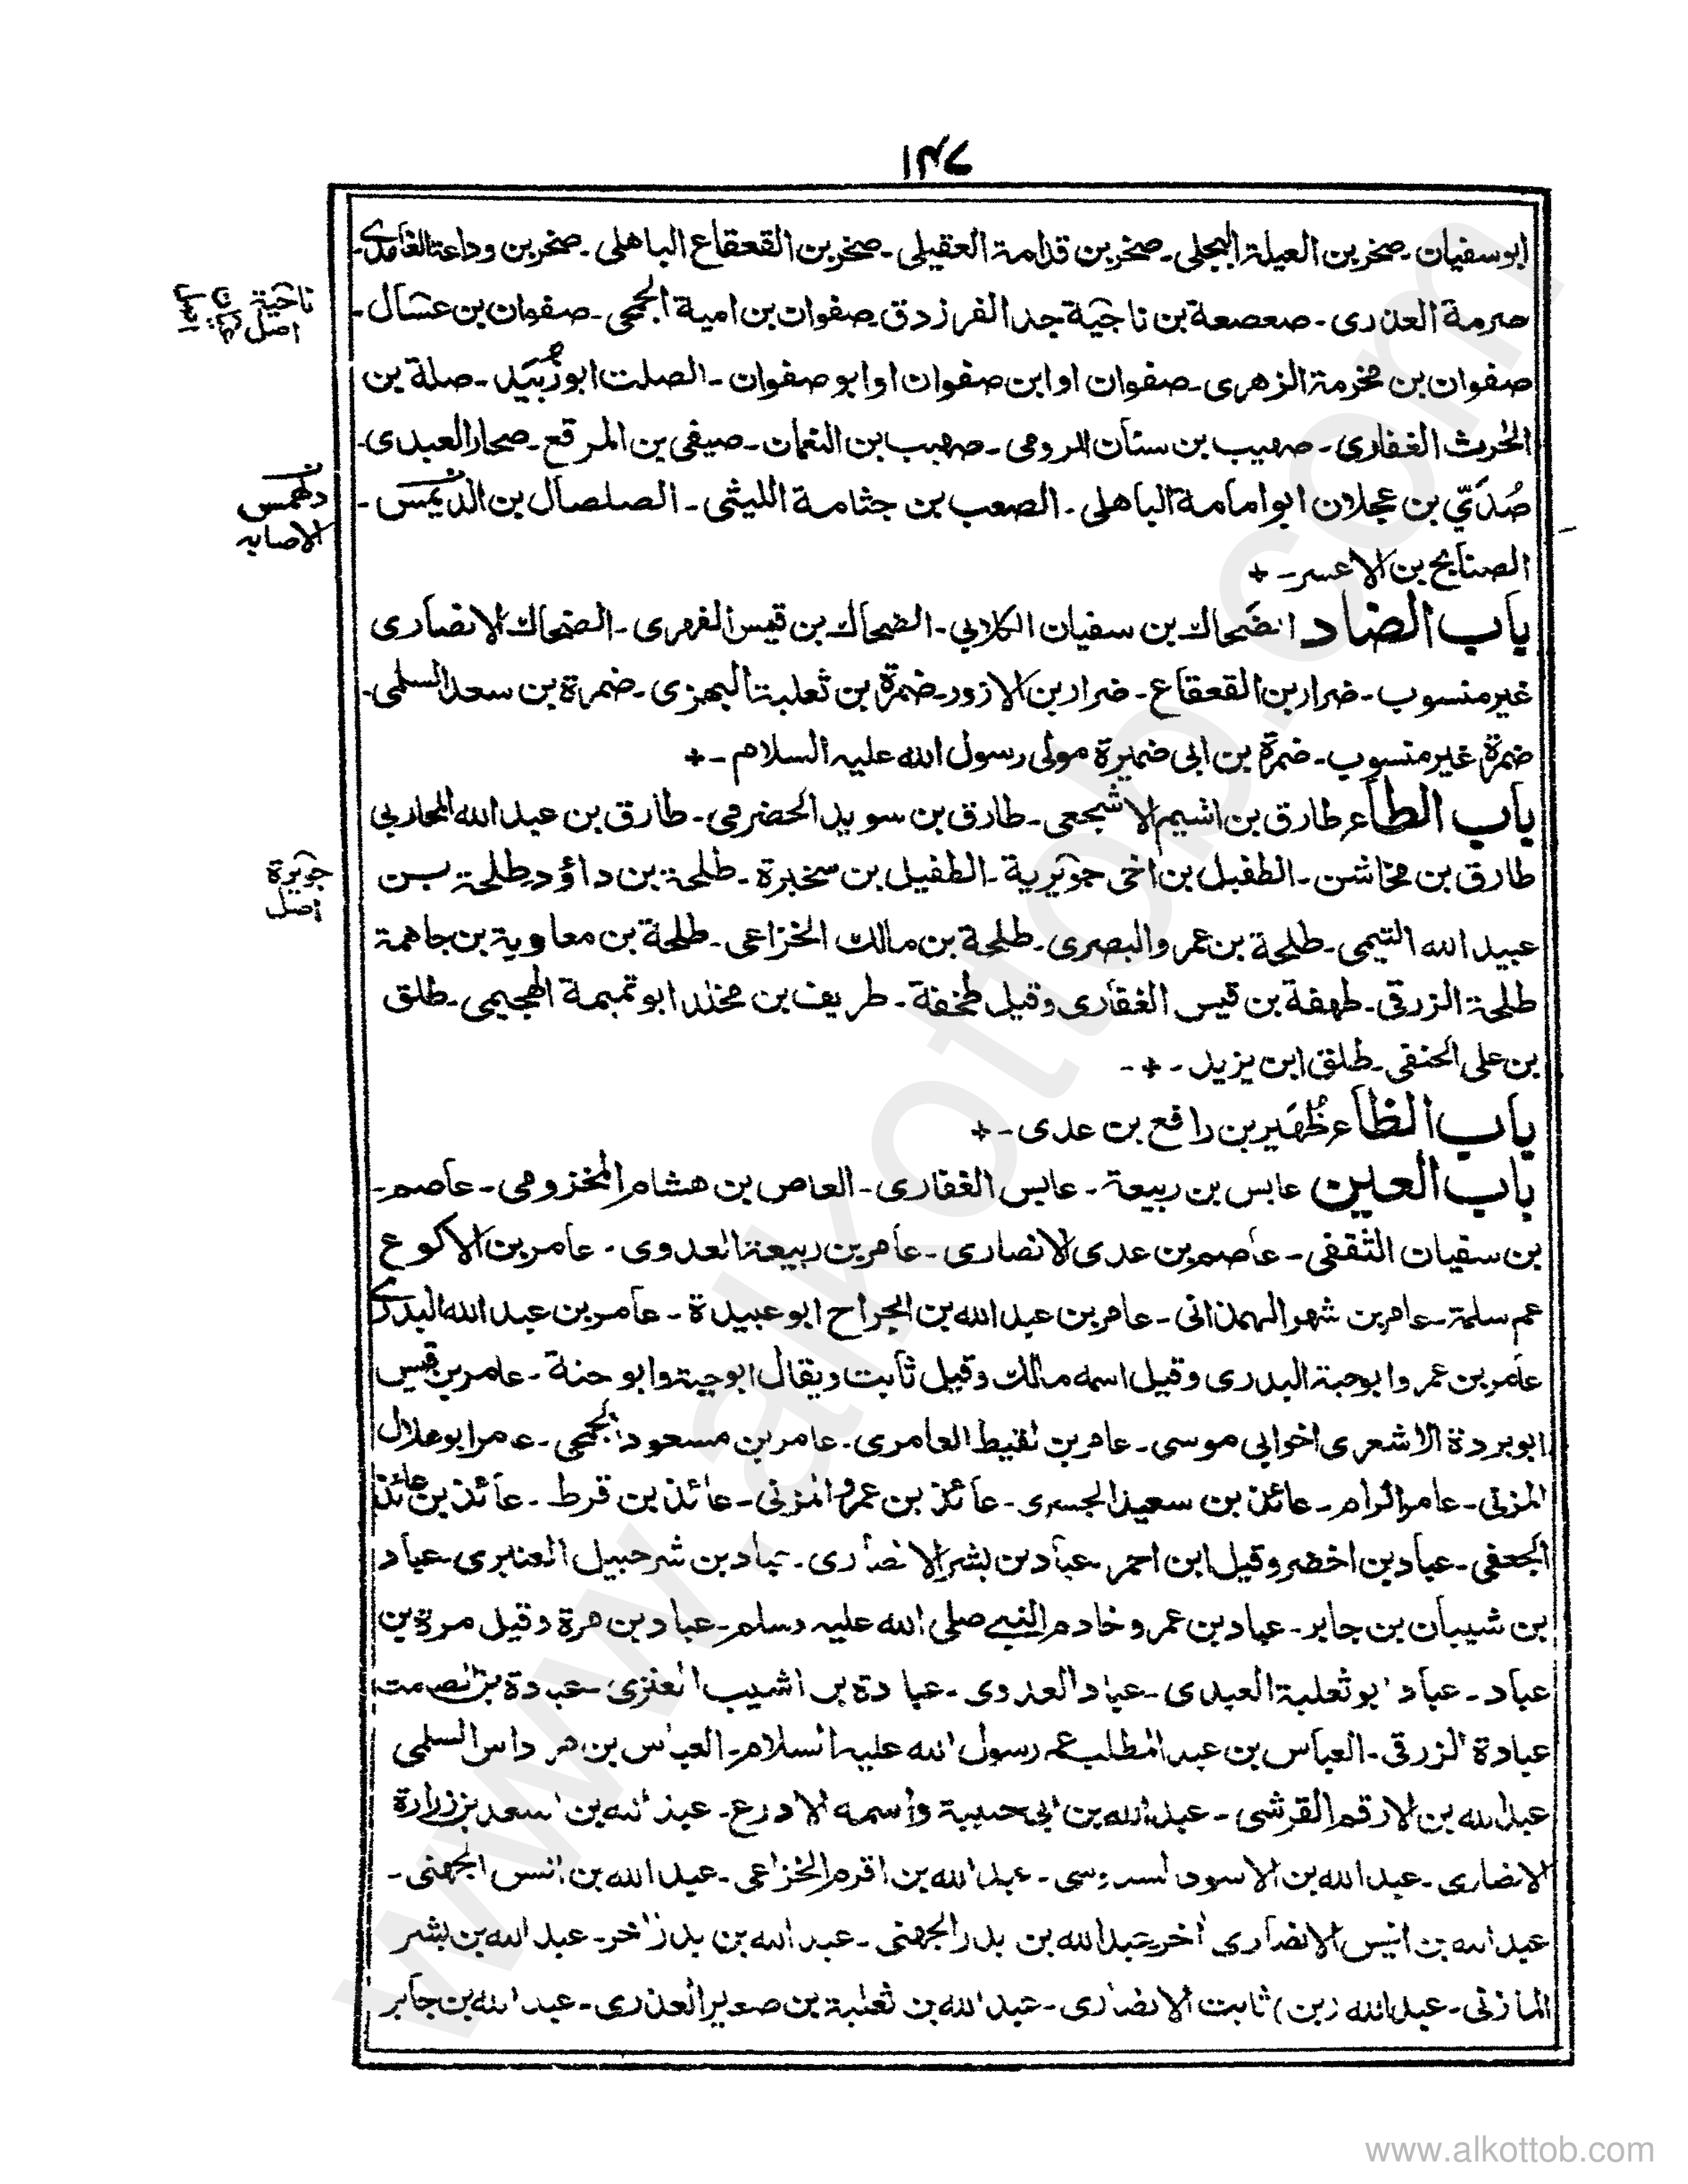 ١٣٤
ابوسفيان - صخر بن العيلة البجلى - صخر بن قدامة العقيلى - صخر بن القعقاع الباهلى - صخر بن وداعة الغامدى -
صرمة العذرى - صعصعة بن ناجية جد الفرزدق - صفوان بن امية الجمحى - صفوان بن عسال -
صفوان بن مخرمة الزهرى - صفوان او ابن صفوان او ابو صفوان - الصلت ابو زُبَيد - صلة بن
الحٰرث الغفارى - صهيب بن سنان الرومى - صهيب بن النعمان - صيفى بن المرقع - صحار العبدى -
صُدَيّ بن عجلان ابو امامة الباهلى - الصعب بن جثامة الليثى - الصلصال بن الديمس -
الصنابح بن الاعسر - +
باب الضاد الضحاك بن سفيان الكلابي - الضحاك بن قيس الفهرى - الضحاك الانصارى
غير منسوب - ضرار بن القعقاع - ضرار بن الازور - ضمرة بن ثعلبة البهزى - ضمرة بن سعد السلمى -
ضمرة غير منسوب - ضمرة بن ابى ضميرة مولى رسول الله عليه السلام - +
باب الطاء طارق بن اشيم الاشجعى - طارق بن سويد الحضرمى - طارق بن عبد الله المحاربي
طارق بن مخاشن - الطفيل بن اخى جويرية - الطفيل بن سخبرة - طلحة بن داؤد - طلحة بن
عبيد الله التيمى - طلحة بن عمرو البصرى - طلحة بن مالك الخزاعى - طلحة بن معاوية بن جاهمة
طلحة الزرقى - طهفة بن قيس الغفارى وقيل طخفة - طريف بن مخلد ابو تميمة الهجيمى - طلق
بن على الحنفى - طلق ابن يزيد - + -
باب الظاء ظُهَير بن رافع بن عدى - +
باب العين عابس بن ربيعة - عابس الغفارى - العاص بن هشام المخزومى - عاصم -
بن سفيان الثقفى - عاصم بن عدى الانصارى - عامر بن ربيعة العدوى - عامر بن الاكوع
عم سلمة - عامر بن شهر الهمذانى - عامر بن عبد الله بن الجراح ابو عبيدة - عامر بن عبد الله البدرى
عامر بن عمرو ابو حبة البدرى وقيل اسمه مالك وقيل ثابت ويقال ابو حية وابو حنة - عامر بن قيس
ابو بردة الاشعرى اخو ابي موسى - عامر بن لقيط العامرى - عامر بن مسعود الجمحى - عامر ابو هلال
المزنى - عامر الرام - عائذ بن سعيد الجسرى - عائذ بن عمرو المزنى - عائذ بن قرط - عائذ بن عائذ
الجعفى - عباد بن اخضر وقيل ابن احمر - عباد بن بشر الانصارى - عباد بن شرحبيل العنبرى - عباد
بن شيبان بن جابر - عباد بن عمرو خادم النبى صلى الله عليه وسلم - عباد بن مرة وقيل مرة بن
عباد - عباد ابو ثعلبة العبدى - عباد العدوى - عبادة بن اشيب العنزى - عبادة بن الصامت
عبادة الزرقى - العباس بن عبد المطلب عم رسول الله عليه السلام - العباس بن مرداس السلمى
عبد الله بن الارقم القرشى - عبد الله بن ابى حبيبة واسمه الادرع - عبد الله بن اسعد بن زرارة
الانصارى - عبد الله بن الاسود السدوسى - عبد الله بن اقرم الخزاعى - عبد الله بن انس الجهنى -
عبد الله بن انيس الانصارى اخر - عبد الله بن بدر الجهنى - عبد الله بن بدر اخر - عبد الله بن بشر
المازنى - عبد الله (بن) ثابت الانصارى - عبد الله بن ثعلبة بن صعير العذرى - عبد الله بن جابر
ناحية
اصل
دلهمس
الاصابه
جويرة
اصل
www.alkottob.com
www.alkottob.com